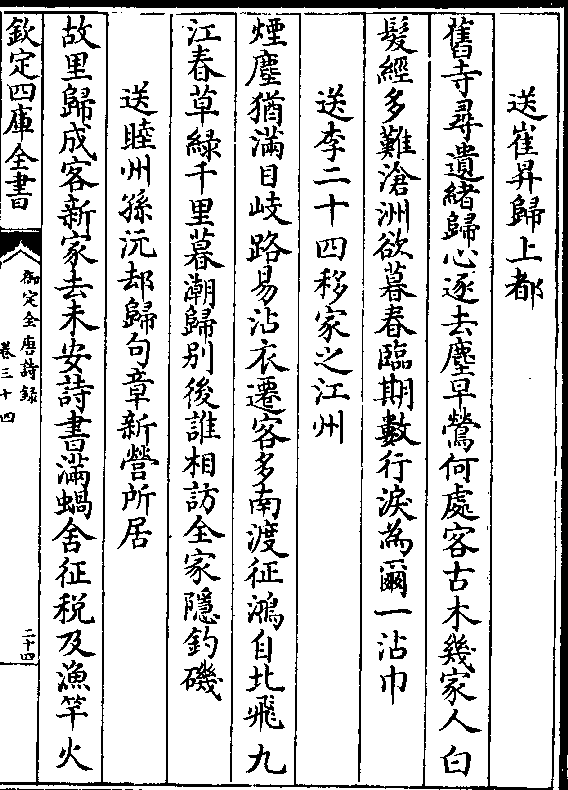 送崔昇歸上都
舊寺尋遺緒歸心逐去塵早鶯何處客古木幾家人白
髮經多難滄洲欲暮春臨期數行淚為爾一沾巾
送李二十四移家之江州
煙塵猶滿目岐路易沾衣遷客多南渡征鴻自北飛九
江春草綠千里暮潮歸别後誰相訪全家隱釣磯
送睦州孫沅却歸句章新營所居
故里歸成客新家去未安詩書滿蝸舍征税及漁竿火
欽定四庫全書
御定全唐詩録
卷三十四
二十四